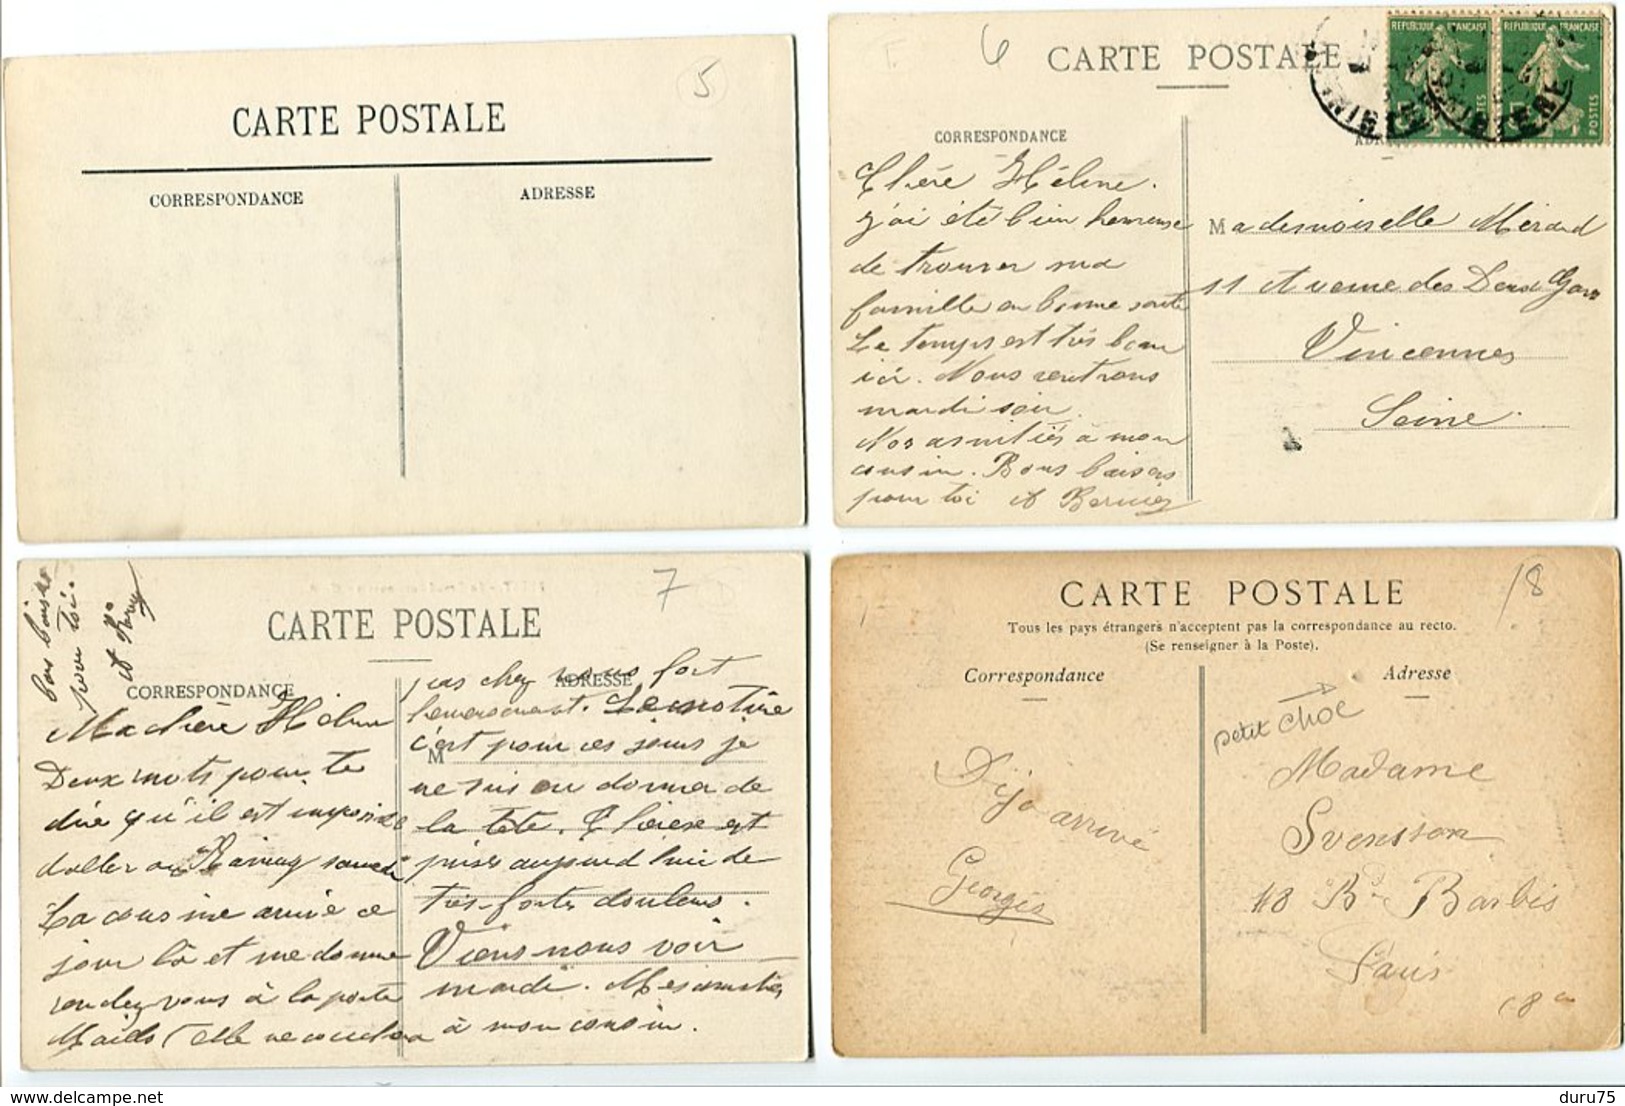 5
CARTE POSTALE
CORRESPONDANCE
ADRESSE
6
CARTE POSTALE
REPUBLIQUE FRANÇAISE
REPUBLIQUE FRANÇAISE
POSTES
POSTES
CORRESPONDANCE
Chère Hélène.
j'ai été bien heureuse
de trouver ma
famille en bonne santé
Le temps est très beau
ici. Nous rentrons
mardi soir.
Nos amitiés à mon
cousin. Bons baisers
pour toi et
Mademoiselle
11 Avenue des
Vincennes
Seine.
7
bons baisers
pour toi.
et
CARTE POSTALE
CORRESPONDANCE
ADRESSE
Ma chère Hélène
Deux mots pour te
dire qu'il est impossible
d'aller au samedi
La cousine arrive ce
jour là et me donne
rendez-vous à la porte
Maillot (elle ne couchera
pas chez nous fort
heureusement.
M
c'est pour ces jours je
ne sais où donner de
la tête. Thérèse est
prise aujourd'hui de
très fortes douleurs.
Viens nous voir
mardi. Mes amitiés
à mon cousin.
18
CARTE POSTALE
Tous les pays étrangers n'acceptent pas la correspondance au recto.
(Se renseigner à la Poste).
Correspondance
Adresse
petit choc
Déjà arrivé
Georges
Madame
Svensson
Barbès
Paris
delcampe.net
duru75